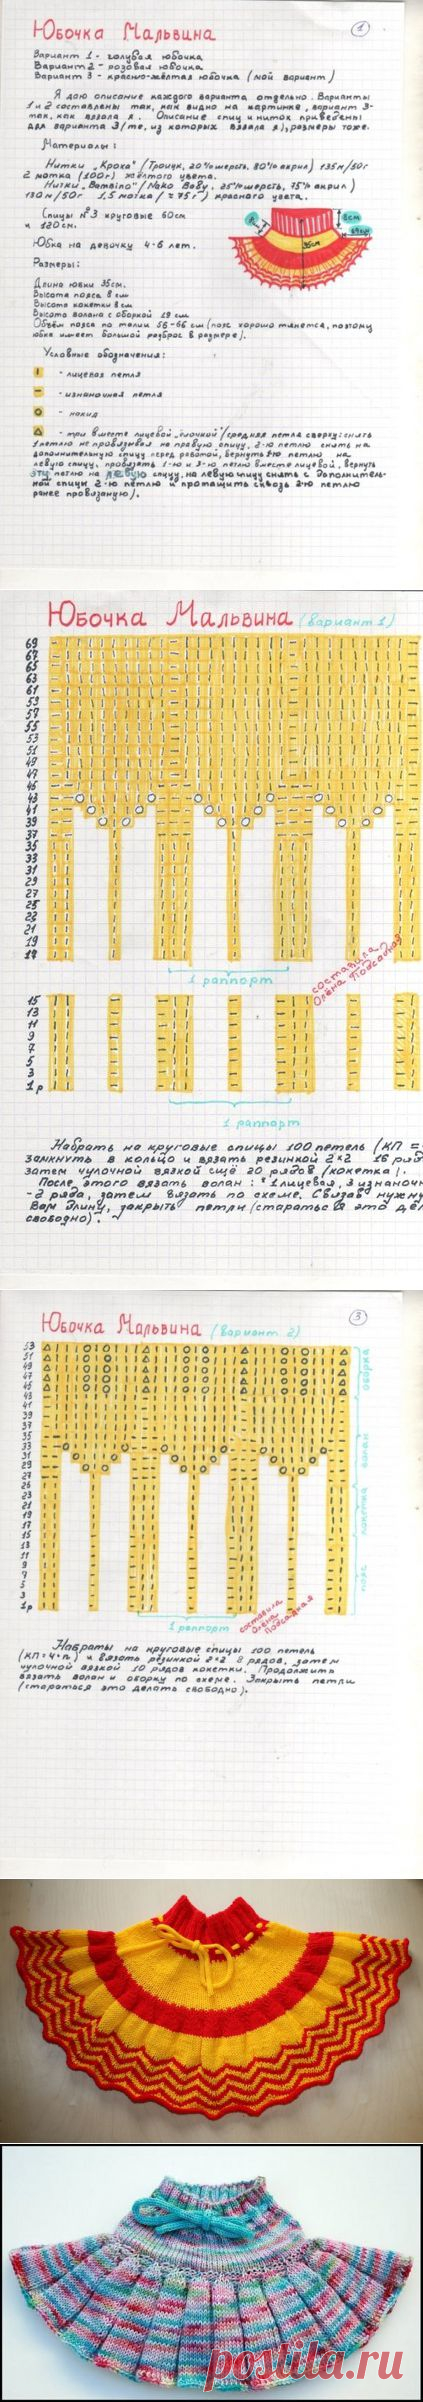 Юбочка Мальвина
1
Вариант 1 - голубая юбочка
Вариант 2 - розовая юбочка
Вариант 3 - красно-жёлтая юбочка (мой вариант)
Я даю описание каждого варианта отдельно. Варианты
1 и 2 составлены так, как видно на картинке, вариант 3-
так, как вязала я. Описание спиц и ниток приведены
для варианта 3/те, из которых вязала я), размеры тоже.
Материалы:
Нитки „Кроха" (Троицк, 20% шерсть, 80% акрил) 135м/50г
2 мотка (100г) жёлтого цвета.
Нитки „Bambino" (Nako Baby, 25% шерсть, 75% акрил)
130м/50г 1,5 мотка (≈75г) красного цвета.
Спицы №3 круговые 60см
и 120см.
Юбка на девочку 4-6 лет.
Размеры:
8см
35см
Длина юбки 35см.
Высота пояса 8 см
Высота кокетки 8 см
Высота волана с оборкой 19 см
Объём пояса по талии 56-66 см (пояс хорошо тянется, поэтому
юбка имеет большой разброс в размере).
Условные обозначения:
- лицевая петля
- изнаночная петля
- накид
- три вместе лицевой (средняя петля сверху: снять
1 петлю не провязывая на правую спицу, 2-ю петлю снять на
дополнительную спицу перед работой, вернуть 1-ю петлю на
левую спицу, провязать 1-ю и 3-ю петлю вместе лицевой, вернуть
эту петлю на левую спицу, на левую спицу снять с дополнитель-
ной спицы 2-ю петлю и протащить сквозь 2-ю петлю
ранее провязанную).
Юбочка Мальвина (вариант 1)
69
67
65
63
61
59
57
55
53
51
49
47
45
43
41
39
37
35
33
31
29
27
25
21
19
17
1 раппорт
составила
Олёна Подсадная
15
13
11
9
7
5
3
1р
1 раппорт
Набрать на круговые спицы 100 петель (КП =
замкнуть в кольцо и вязать резинкой 2*2 16 ряд
затем чулочной вязкой ещё 20 рядов (кокетка).
После этого вязать волан: *1 лицевая, 3 изнаноч
- 2 ряда, затем вязать по схеме. Связав нужну
Вам длину, закрыть петли (стараться это дел
свободно).
Юбочка Мальвина (вариант 2)
3
53
51
49
47
45
43
41
39
37
35
33
31
29
27
25
23
21
19
17
15
13
11
9
7
5
3
1р
оборка
волан
кокетка
пояс
1 раппорт
составила
Олёна
Подсадная
Набрать на круговые спицы 100 петель
(КП=4*n) и вязать резинкой 2*2 8 рядов, затем
чулочной вязкой 10 рядов кокетки. Продолжить
вязать волан и оборку по схеме. Закрыть петли
(стараться это делать свободно).
postila.ru